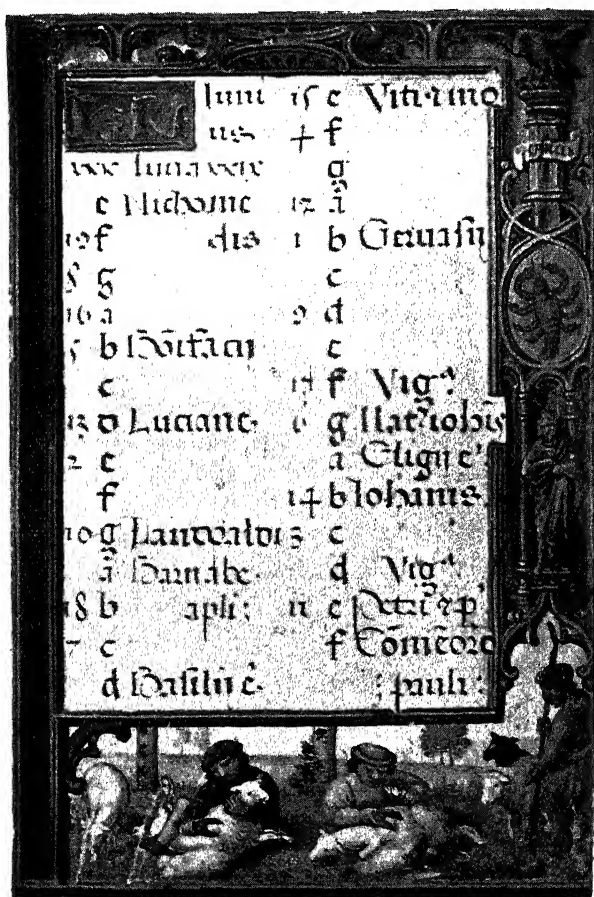 KL Iuni
us
xxx luna xxix
e Nichome
19 f dis
8 g
16 a
5 b Bo͞ifa͞cii
c
13 d Luciane.
2 e
f
10 g Landoaldi
a Barnabe.
18 b apli:
7 c
d Basilii e.
15 e Viti: mo
4 f
g
12 a
1 b Geruasii
c
9 d
e
17 f Vig
6 g Nat iohis
a Eligii e
14 b Iohanis.
3 c
d Vig
11 e Petri ⁊ p
f Com͞e͞oro
: pauli :